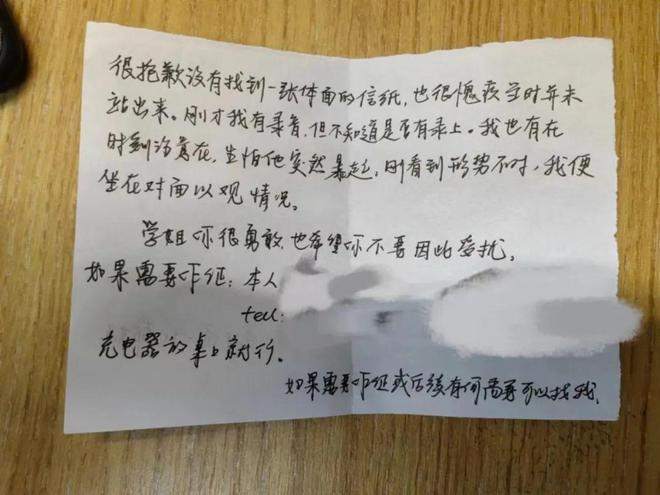 很抱歉没有找到一张体面的信纸，也很愧疚当时并未
站出来。刚才我有录音，但不知道是否有录上。我也有在
时刻注意在，生怕他突然暴起，刚看到形势不对，我便
坐在对面以观情况。
学姐你很勇敢也希望你不要因此受扰。
如果需要作证：本人
tell:
充电器放桌上就行。
如果需要作证或后续有何需要可以找我。